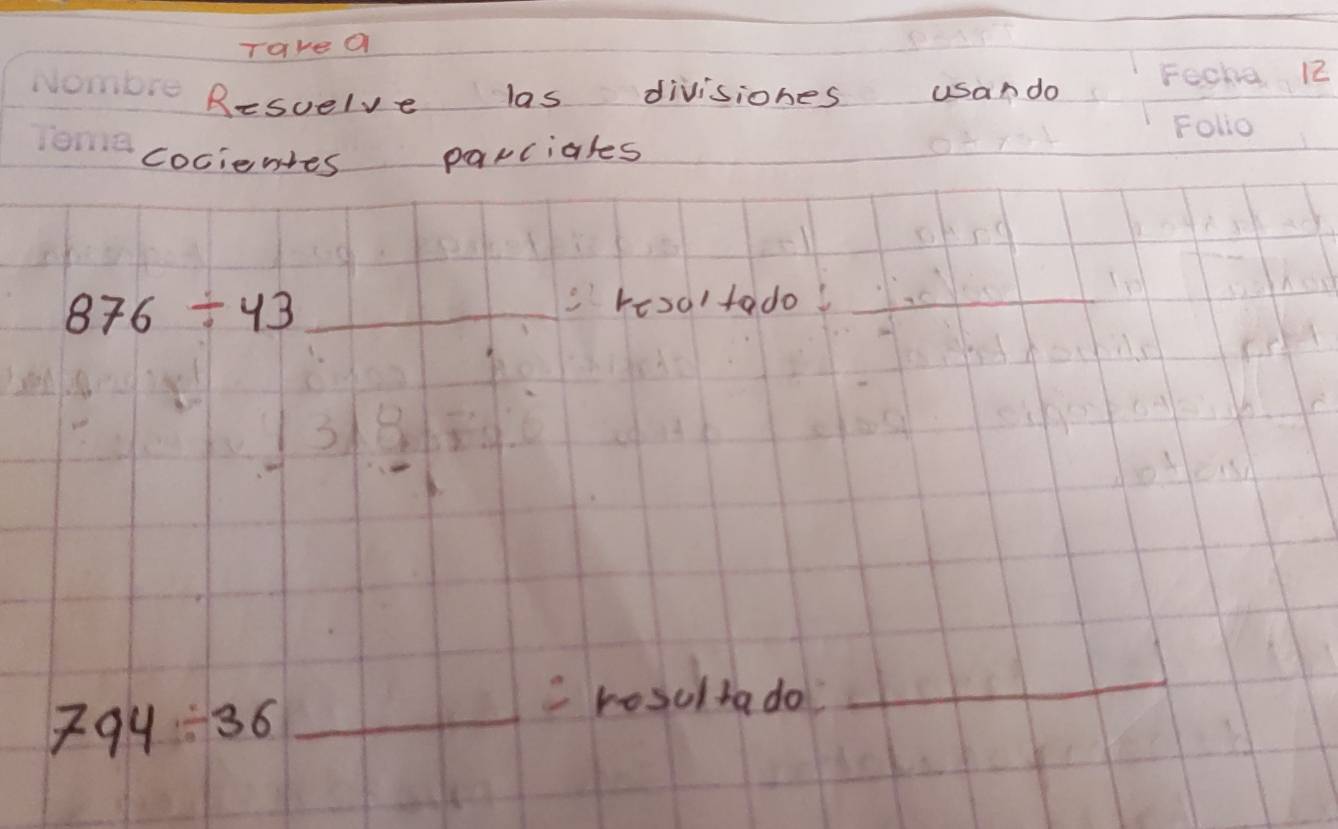 Tarea
Nombre Resuelve las divisiones usando Fecha 12
Tema cocientes parciales Folio
876 ÷ 43 ________ = resultado: ________
794 ÷ 36 ________ = resultado: ________